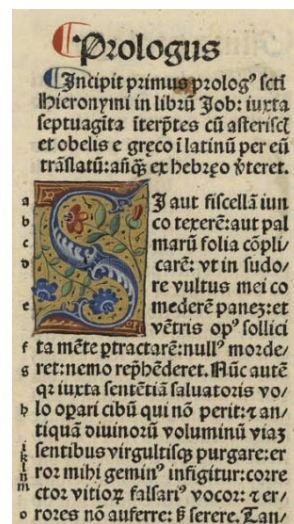 Prologus
Incipit primus ꝓlogꝰ sctī
Hieronymi in librū Job: iuxta
septuagīta īterp̄tes cū asteriscꝭ
et obelis e gręco ī latinū per eū
trāslatū: añq̄ꝫ ex hebręo v̓teret.
a SI aut fiscellā iun
b co texerē: aut pal
c marū folia cōpli
d carē: vt in sudo/
re vultus mei co
e mederē paneꝫ: et
vētris opꝰ sollici
f ta mēte ꝑtractarē: nullꝰ morde/
g ret: nemo rep̄hēderet. Nūc autē
qꝛ iuxta sentētiā saluatoris vo/
h lo oꝑari cibū qui nō perit: ⁊ an/
tiquā diuinorū voluminū viaꝫ
i sentibus virgultisqꝫ purgare: er
k l ror mihi geminꝰ infigitur: corre
n m ctor vitioꝝ falsariꝰ vocor: ⁊ er/
o rores nō auferre: sꝫ serere. Tan/